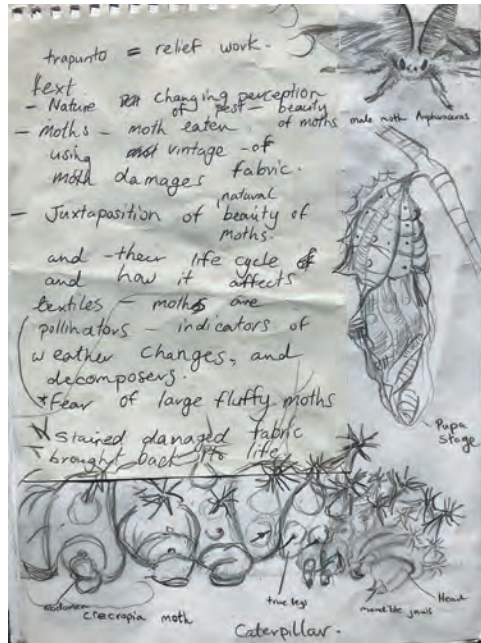 trapunto = relief work.
text
- Nature changing perception
of pest - beauty
of moths
- moths - moth eaten
using vintage - of
moth damages fabric.
- Juxtaposition of natural beauty of
moths.
and - their life cycle of
and how it affects
textiles - moths are
pollinators - indicators of
weather changes, and
decomposers.
* Fear of large fluffy moths
* Stained damaged fabric
- brought back to life
male moth
Pupa
stage
abdomen
cecropia moth
true legs
mandible jaws
Head
Caterpillar.